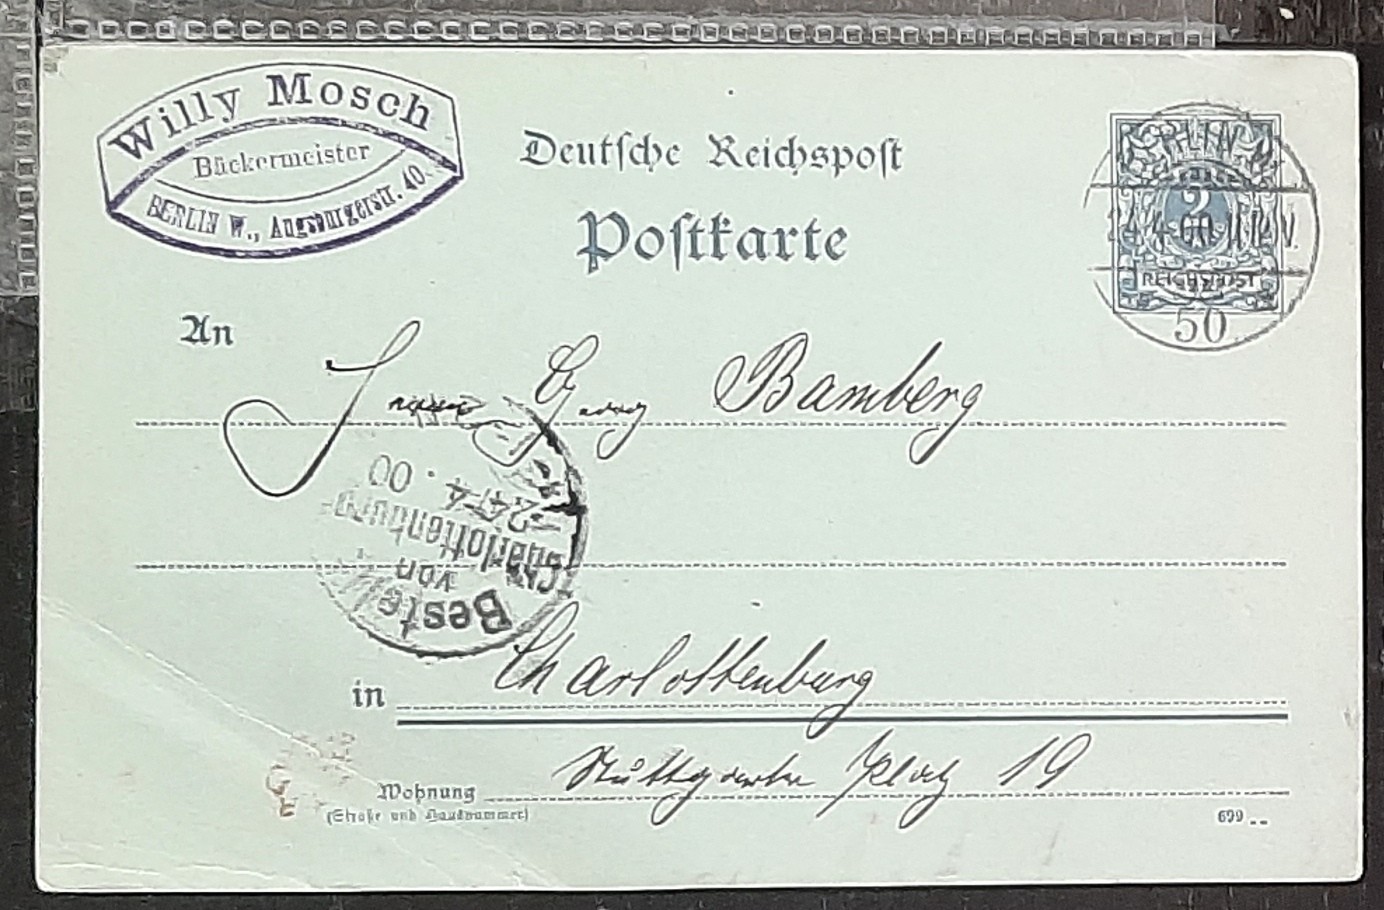 Willy Mosch
Bäckermeister
BERLIN W., Augsburgerstr. 40.
Deutsche Reichspost
Postkarte
BERLIN W.
2
24.4.00. 11-12 V.
REICHSPOST
50
An
Bamberg
Bestellt
von
Charlottenburg
24.4.00
in Charlottenburg
Stuttgarter Platz 19
Wohnung
(Straße und Hausnummer)
699